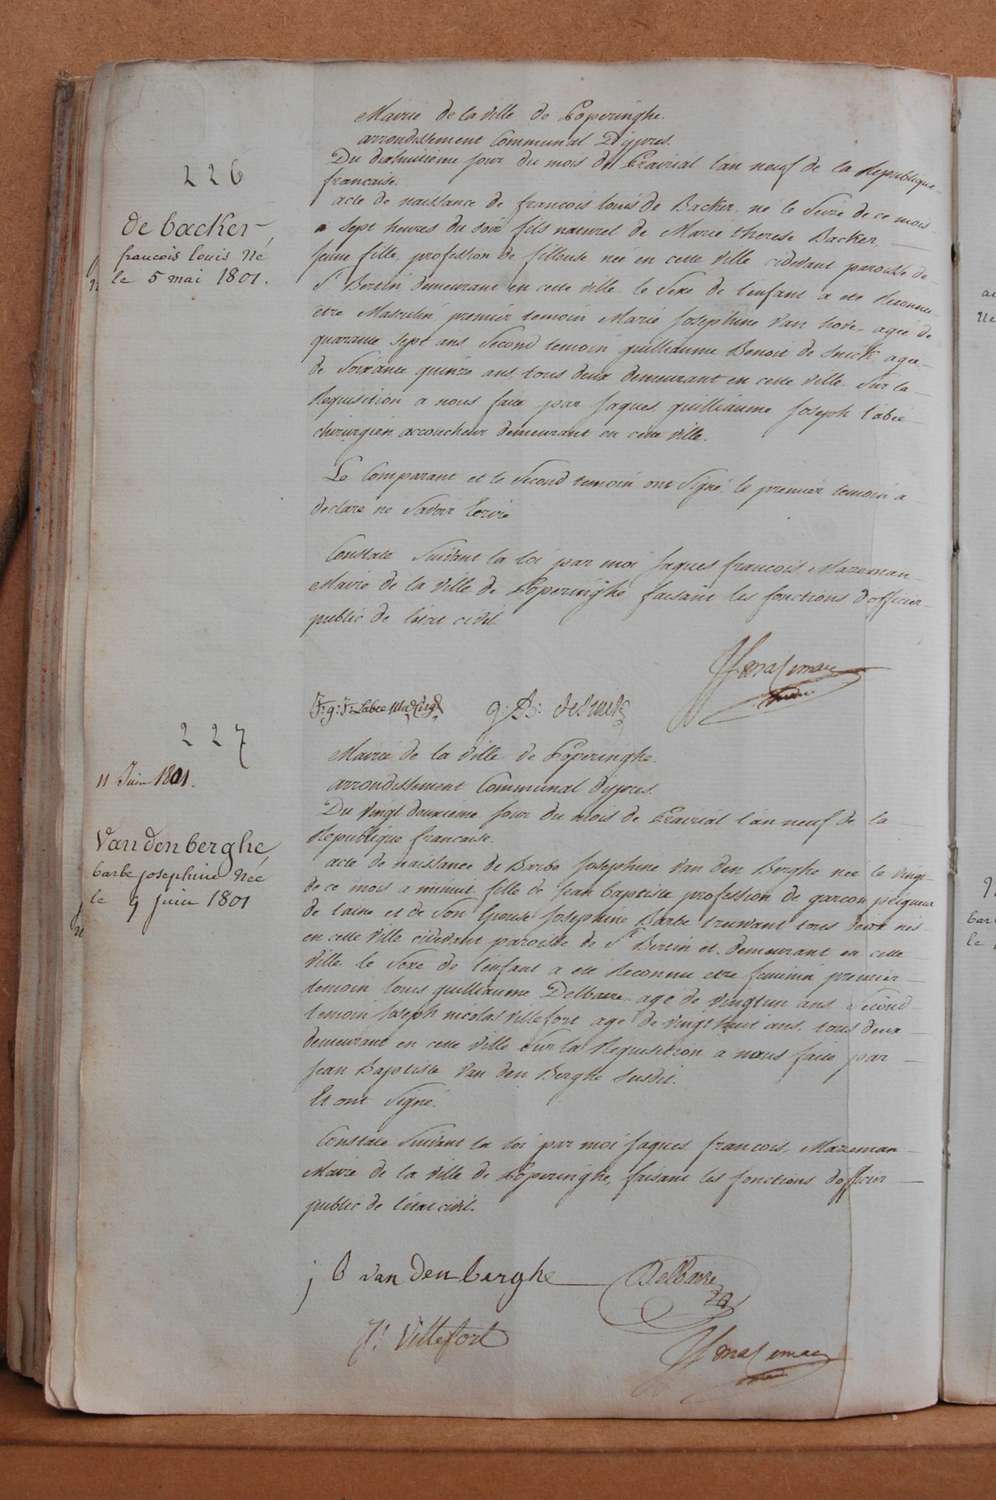 226
de backer
francois louis Né
le 5 mai 1801.
Mairie de la ville de Poperinghe.
arrondissement Communal D'ypres.
Du dixhuitieme jour du mois de Prairial l'an neuf de la Republique
francaise.
acte de naissance de francois louis de Backer né le Seize de ce mois
a sept heures du soir fils naturel de Marie therese Backer
jeune fille profession de fileuse nee en cette ville cidevant paroisse de
St Bertin demeurant en cette ville le Sexe de l'enfant a ete Reconnu
etre Masculin premier temoin Marie Josephine Van hove agee de
quarante sept ans Second temoin guilliaume Benoit de Smick age
de Soixante quinze ans tous deux demeurant en cette ville Sur la
Requisition a nous faite par Jaques guilliaume Joseph Labie
chirurgien accoucheur demeurant en cette ville.
Le Comparant et le Second temoin ont Signé le premier temoin a
declare ne Savoir Ecrire
Constate Suivant la loi par moi Jaques francois Mazeman
Maire de la ville de Poperinghe faisant les fonctions d'officier
public de l'etat civil
JfmaSeman
g: B: deSmick
227
11 Juin 1801.
Vandenberghe
barbe josephine Née
le 9 juin 1801
Mairie de la ville de Poperinghe.
arrondissement Communal d'ypres.
Du vingt deuxieme jour du mois de Prairial l'an neuf de la
Republique francaise.
acte de naissance de Barbe Josephine Van den Berghe nee le vingt
de ce mois a minuit fille de Jean baptiste profession de garcon peigneur
de laine et de Son Epouse Josephine Barbe truwant tous deux nés
en cette ville cidevant paroisse de St Bertin et demeurant en cette
ville le Sexe de l'enfant a eté Reconnu etre feminin premier
temoin louis guilliaume Delbaere age de vingtun ans Second
temoin Joseph nicolas Villefort age de vingt huit ans tous deux
demeurant en cette ville sur la Requisition a nous faite par
Jean Baptiste Van den Berghe Susdit.
Et ont Signé.
Constate Suivant la loi par moi Jaques francois Mazeman
Maire de la ville de Poperinghe, faisant les fonctions d'officier
public de l'etat civil.
j B van den berghe
Delbaere
J: Villefort
JfmaSeman